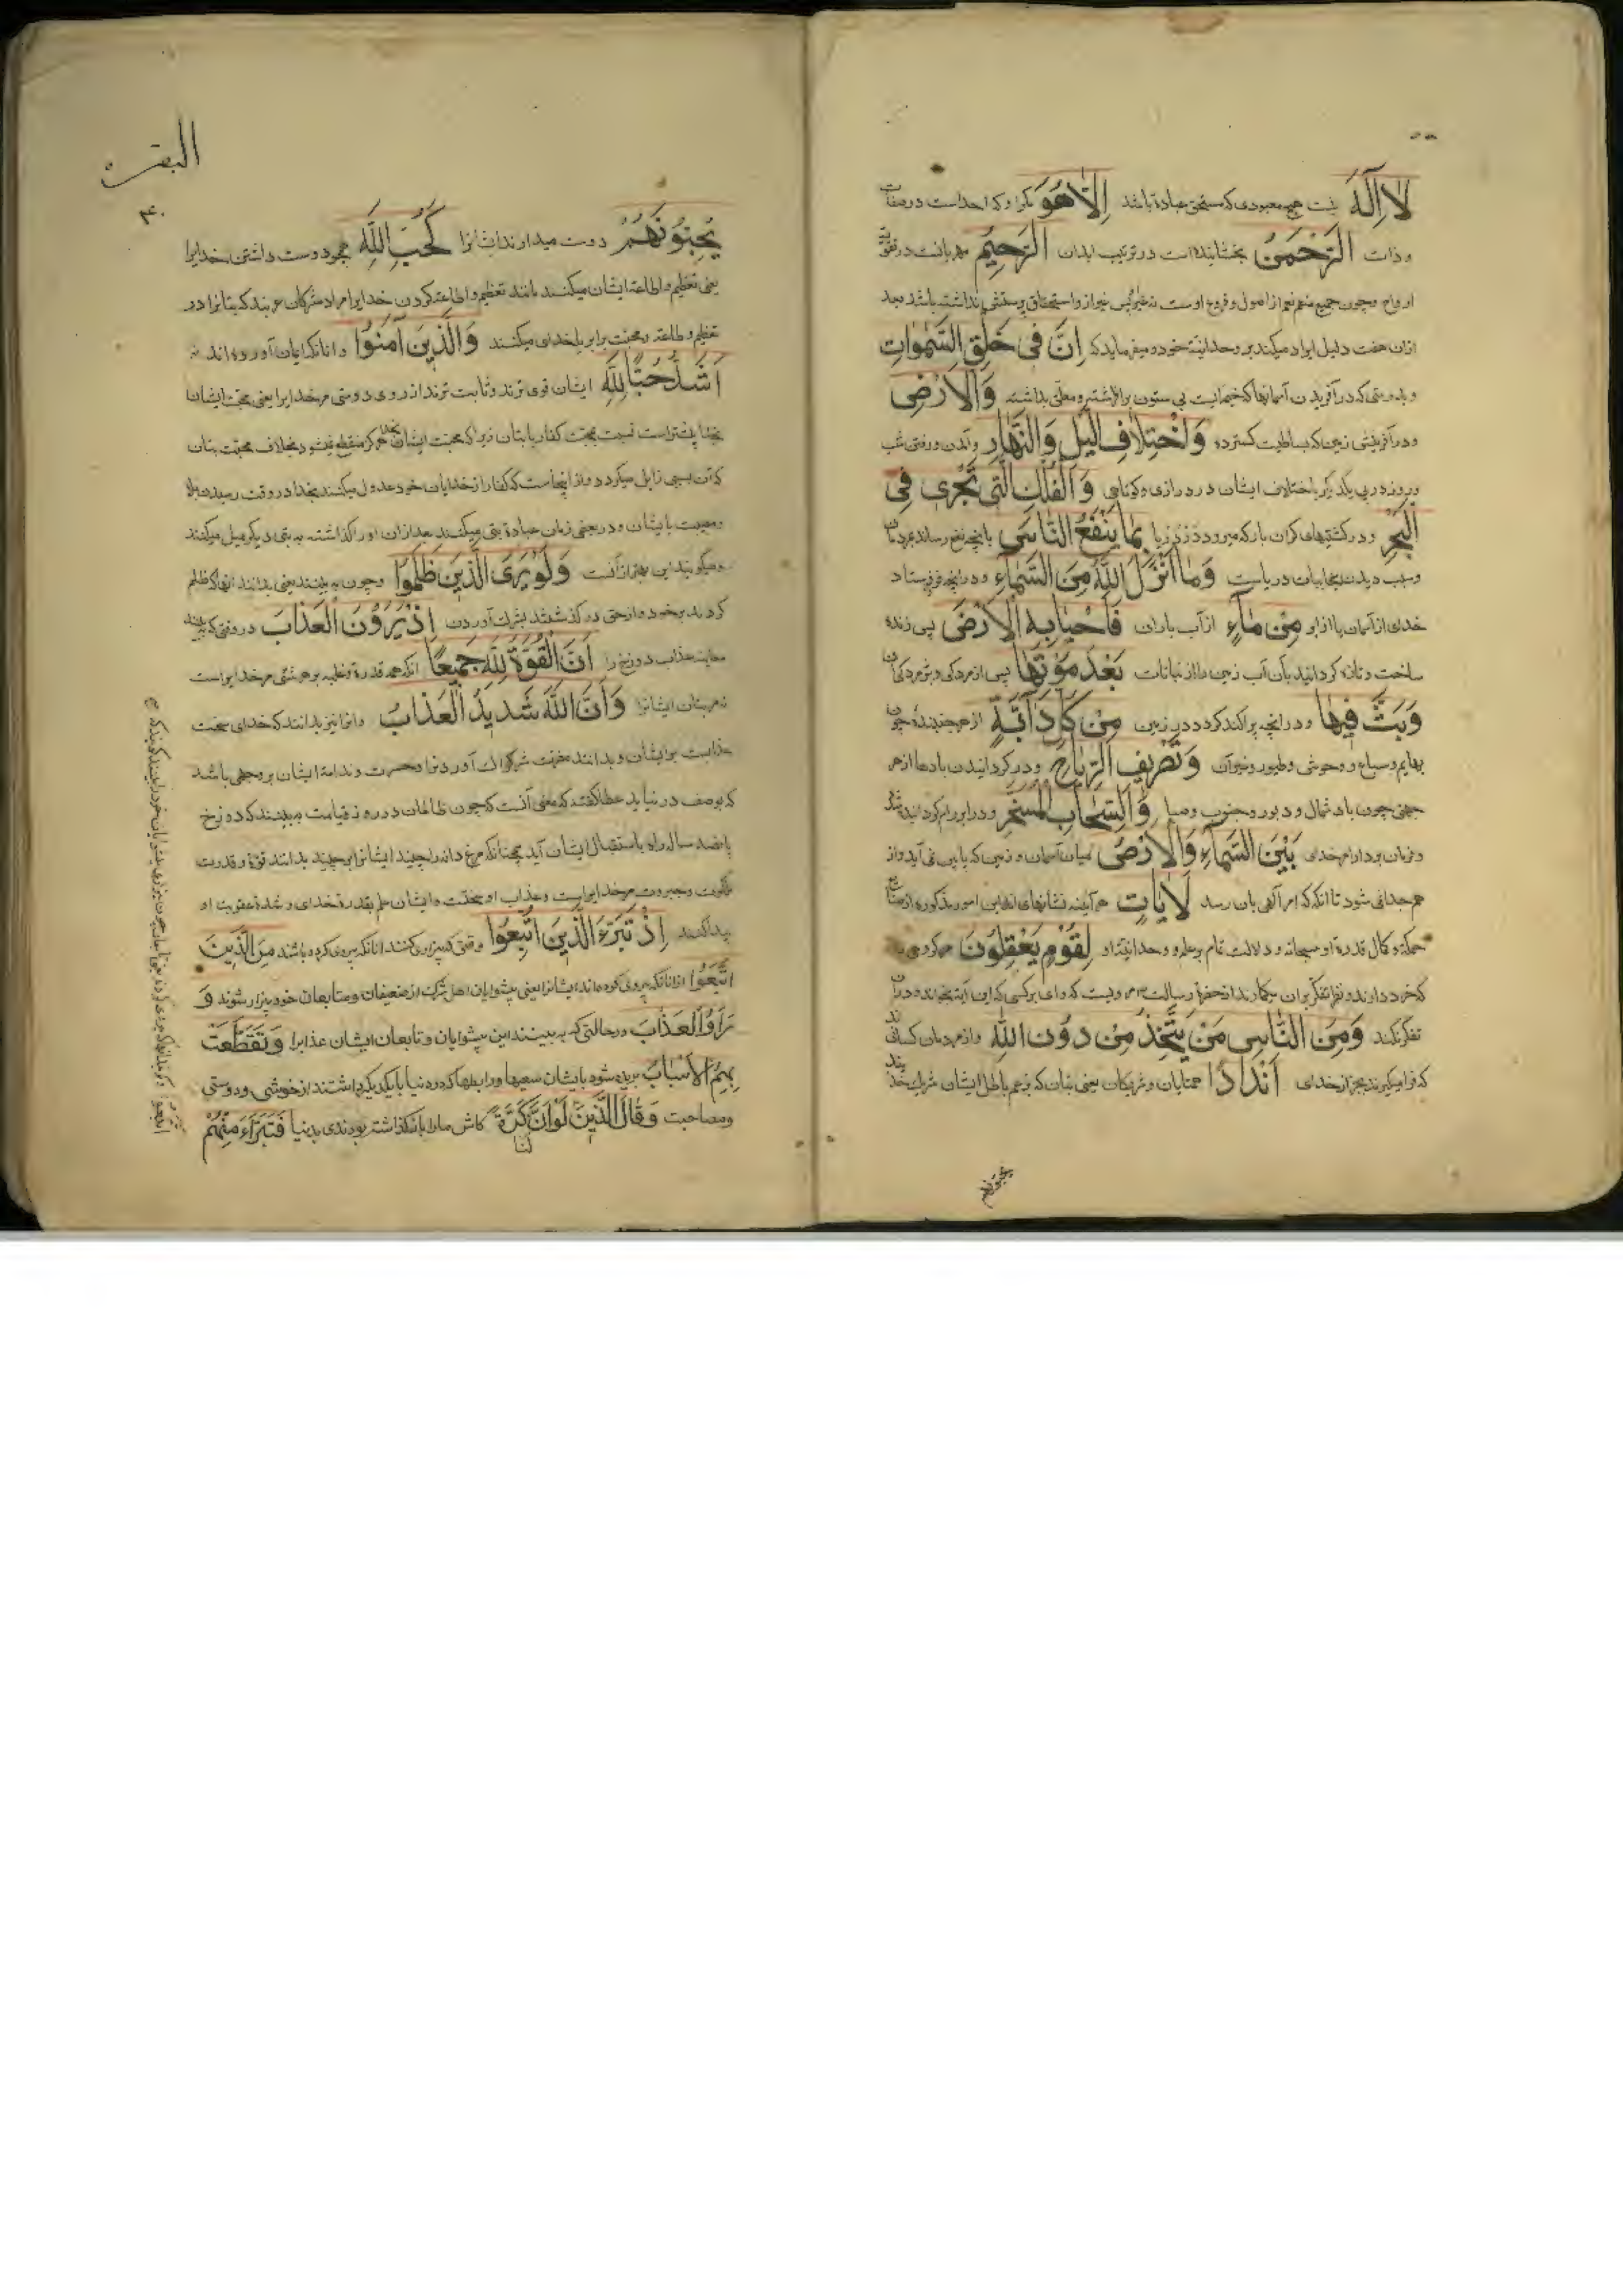 لا اله نیست هیچ معبودی که مستحق عبادة باشد الا هو مگر او که احداست در صفات
و ذات الرحمن بخشاینده است در تربیت ابدان الرحیم مهربانست در تقویة
ارواح و چون جمیع منعم نعم از اصول و فروع اوست نه غیر پس غیر او استحقاق پرستش نداشته باشد و بعد
ازان هفت دلیل ایراد میکند بر وحدانیة خود و میفرماید که ان فی خلق السموات
و بدرستی که در آفریدن آسمانها که خیمهایست بی ستون برافراشته و معلق بداشته والارض
و در آفرینش زمین که بساطیست گسترده واختلاف الیل والنهار و آمدن و رفتن شب
و روز در پی یکدیگر یا اختلاف ایشان در درازی و کوتاهی والفلک التی تجری فی
البحر و در کشتیهای گران بار که میرود در دریا بما ینفع الناس بانچه نفع رساند بمردمان
و سبب دیدن عجایبات دریاست وما انزل الله من السماء و در انچه فرو فرستاد
خدای از آسمان یا از ابر من ماء از آب باران فاحیا به الارض پس زنده
ساخت و تازه گردانید بآن آب زمین را از نباتات بعد موتها پس از مردگی و پژمردگی آن
وبث فیها و در انچه پراکنده کرد در زمین من کل دآبة از هر جنبنده چون
بهایم و سباع و وحوش و طیور و غیر آن وتصریف الریاح و در گردانیدن بادها از هر
جهتی چون باد شمال و دبور و جنوب و صبا والسحاب المسخر و در ابر رام گردانیده شده
و فرمان بردار امر خدای بین السماء والارض میان آسمان و زمین که پایین نمی آید و از
هم جدا نمی شود تا آنکه که امر آلهی بان رسد لایات هر آینه نشانهای اند این امور مذکوره از صنایع
حکمة و کمال قدرة او سبحانه و دلالت تمام بر علم و وحدانیة او لقوم یعقلون مر گروهی را
که خرد دارند و نظر تفکر بران میگمارند از حضرة رسالت مرویست که وای بر کسی که این آیة بخواند و دران
تفکر نکند ومن الناس من یتخذ من دون الله و از مردمان کسانی اند
که فرا میگیرند بجز از خدای اندادا همتایان و شریکان یعنی بتان که بزعم باطل ایشان شریک خدایند
یحبونهم
البقرة
۴۰
یحبونهم دوست میدارند ایشانرا کحب الله همچو دوست داشتن خدایرا
یعنی تعظیم و اطاعة ایشان میکنند مانند تعظیم و اطاعة کردن خدایرا مراد مشرکان عربند که بتانرا در
تعظیم و طاعة و محبت برابر با خدای میکنند والذین آمنوا و آنانکه ایمان آورده اند
اشد حبا لله ایشان قوی ترند و ثابت ترند از روی دوستی مر خدایرا یعنی محبت ایشان
بخدا بیشتر است نسبت بمحبت کفار با بتان زیرا که محبت ایشان بخدا هرگز منقطع نشود بخلاف محبت بتان
که آن بسببی زایل میگردد و از اینجاست که کفار از خدایان خود عدول میکنند بخدا در وقت رسیدن بلا
و مصیبت بایشان و در بعضی زمان عبادة بتی میکنند بعد ازان او را گذاشته به بتی دیگر میل میکنند
و میگویند این بهتر از آنست ولو یری الذین ظلموا و چون به بینند یعنی بدانند آنها که ظلم
کردند بر خود و از حق در گذشتند بشرک آوردن اذ یرون العذاب در وقتی که ببینند
معاینه عذاب دوزخ را ان القوة لله جمیعا آنکه همه قدرة و غلبه بر هر شئی مر خدایراست
نه مر بتان ایشانرا وان الله شدید العذاب و آنرا نیز بدانند که خدای سخت
عذابست بر ایشان و بدانند مضرت شرکرا که آوردند و حسرت و ندامة ایشان بر وجهی باشد
که بوصف در نیاید عطا گفته که معنی آنست که چون ظالمان در روز قیامت به بینند که دوزخ
پانصد ساله راه باستقبال ایشان آید همچنانکه مرغ دانه را چیند ایشانرا برچیند بدانند قوة و قدرت
ملکوت و جبروت مر خدایراست
اذ تبرء الذین اتبعوا وقتی که بیزاری کنند آنانکه پیروی کرده باشند من الذین
اتبعوا از آنانکه پیروی کرده اند ایشانرا یعنی پیشوایان اهل شرک از ضعیفان و متابعان خود بیزار شوند و
رأوا العذاب در حالتی که به بینند این پیشوایان و تابعان ایشان عذابرا وتقطعت
بهم الاسباب بریده شود بایشان سعیها و رابطها که در دنیا با یکدیگر داشتند از خویشی و دوستی
و مصاحبت وقال الذین لو ان لنا کرة کاش مارا بازگذاشته بودندی بدنیا فنتبرأ منهم
اتبعوا